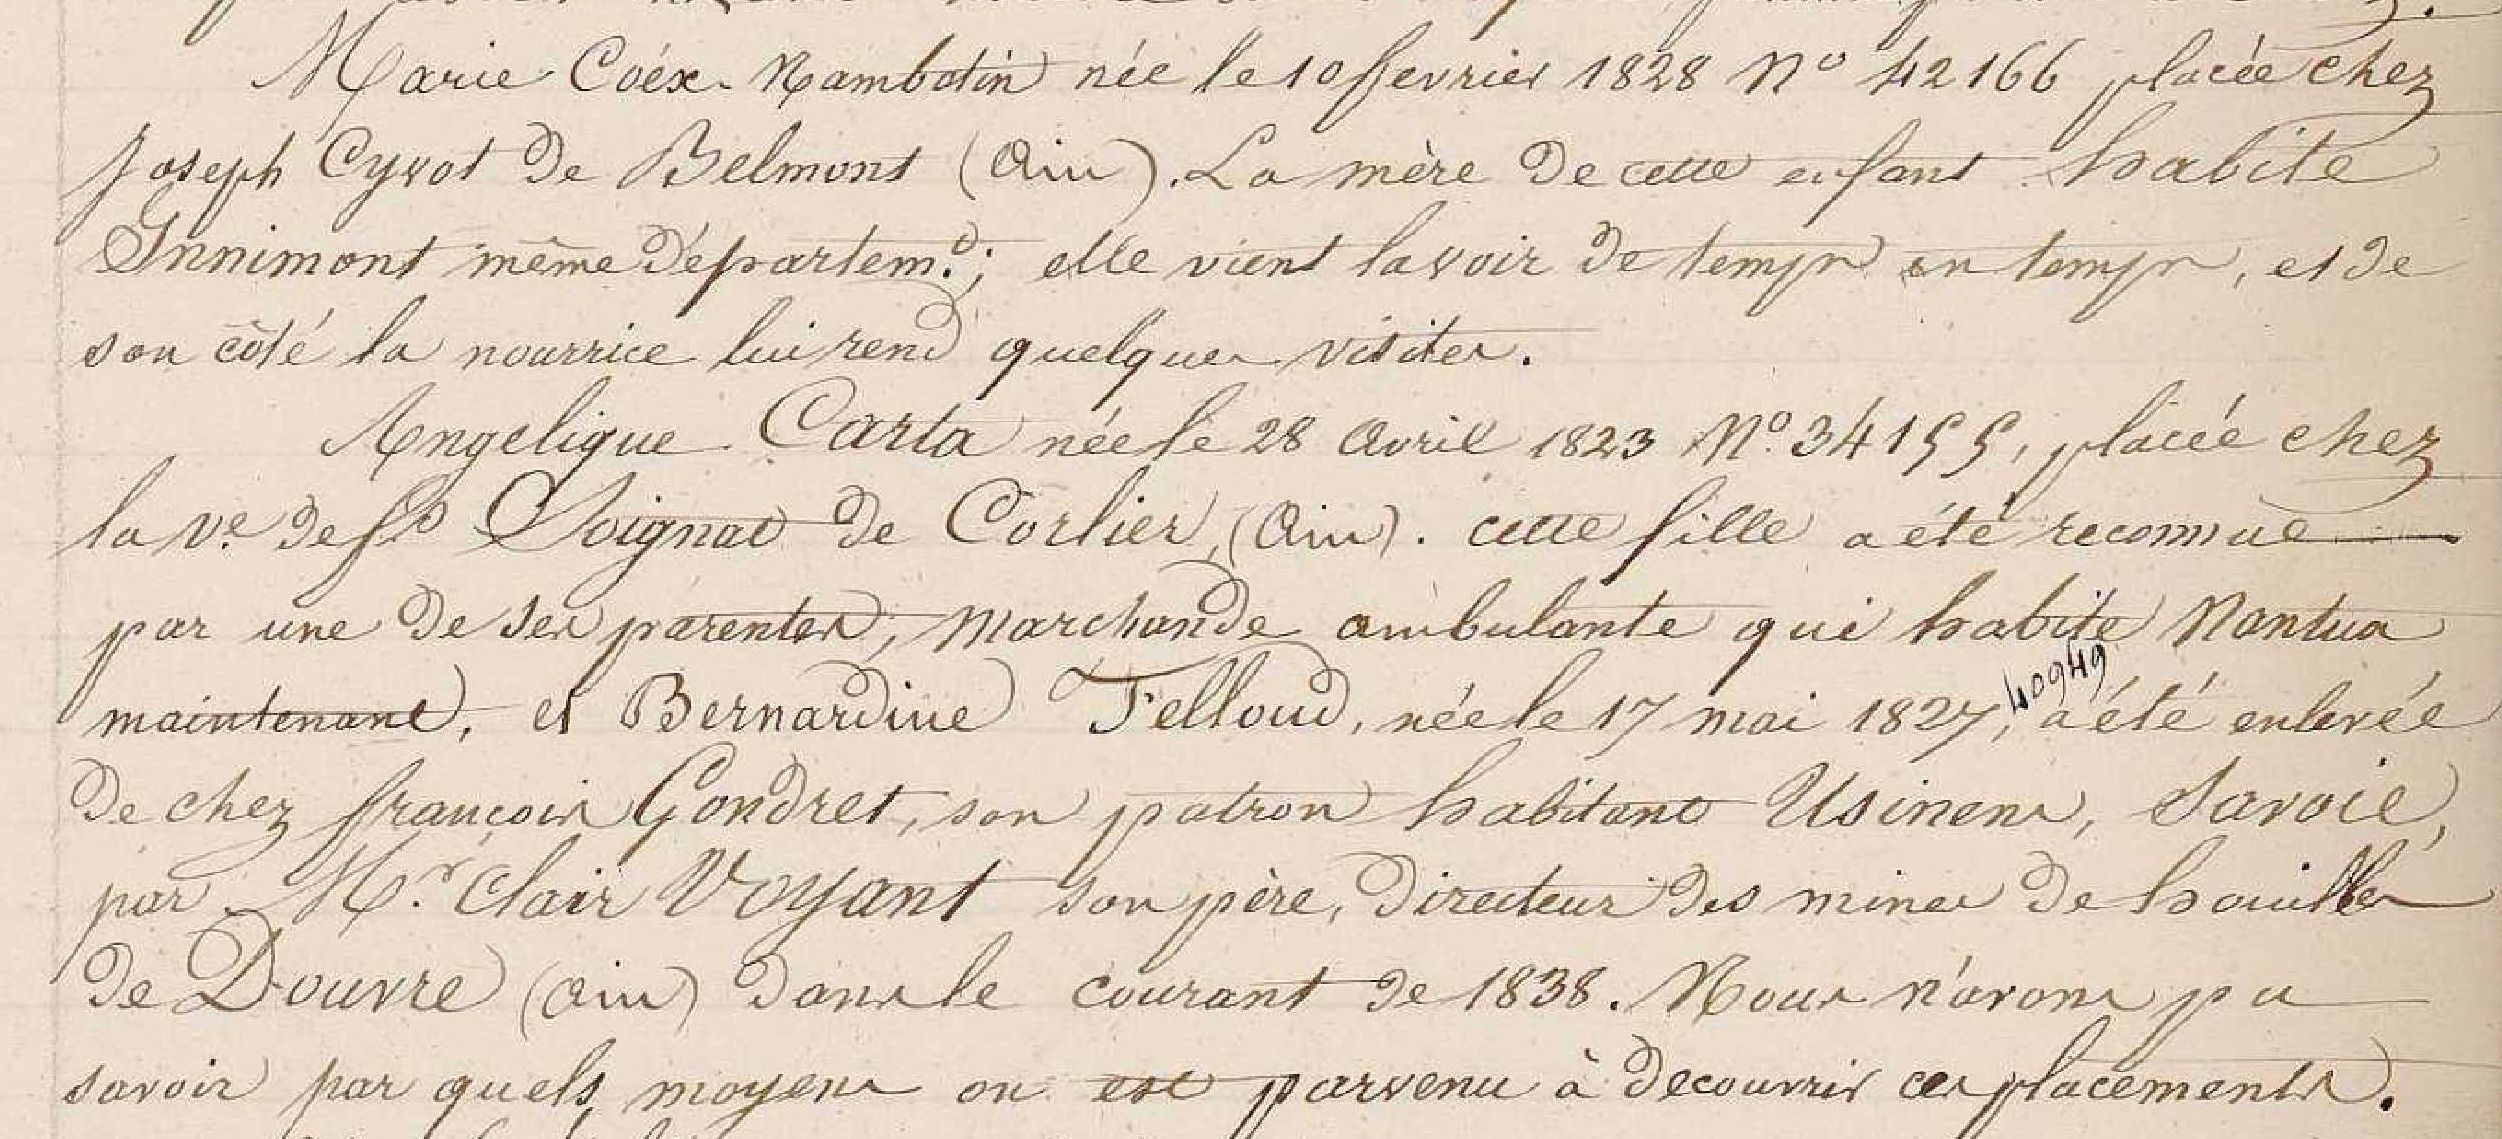 Marie Coëx Rambotin née le 10 fevrier 1828 N° 42166 placée chez
Joseph Cyvot de Belmont (Ain). La mère de cette enfant habite
Innimont même départem.t; elle vient la voir de temps en temps, et de
son côté la nourrice lui rend quelques visites.
Angelique Carta née le 28 Avril 1823 N° 34155, placée chez
la ve. de Soignat de Corlier, (Ain). cette fille a été reconnue
par une de ses parentes, marchande ambulante qui habite Nantua
maintenant, et Bernardine Felloud, née le 17 mai 1827, 40949 a été enlevée
de chez françois Gondret, son patron habitant Usinens, Savoie,
par Mr. Clair Voyant son père, Directeur des mines de houilles
de Douvre (Ain) dans le courant de 1838. Nous n'avons pu
savoir par quels moyens on est parvenu à decouvrir ces placements.